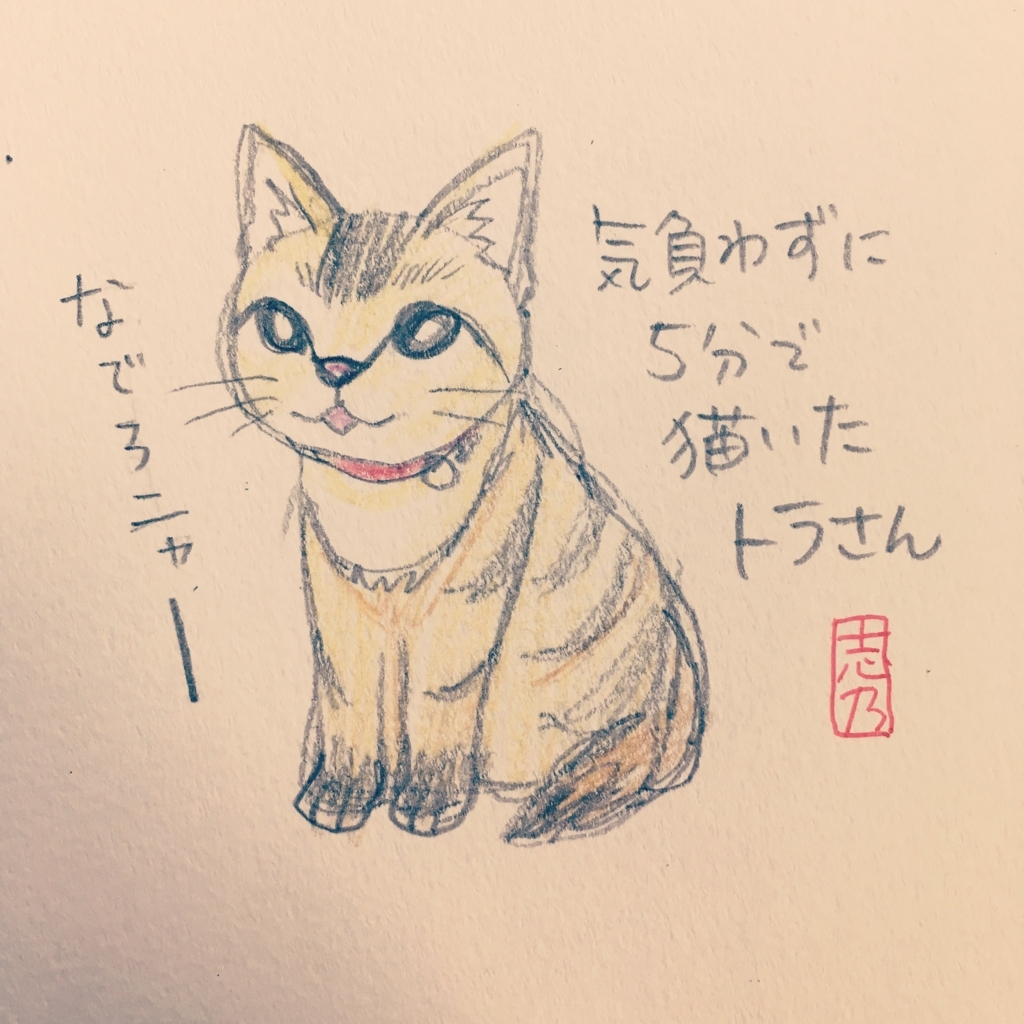 なでろニャー
気負わずに
5分で
猫いた
トラさん
志乃